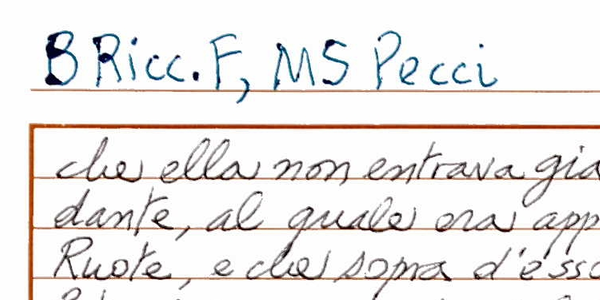 B Ricc. F, MS Pecci
che ella non entrava gia
dante, al quale era app
Ruote, e che sopra d'esso